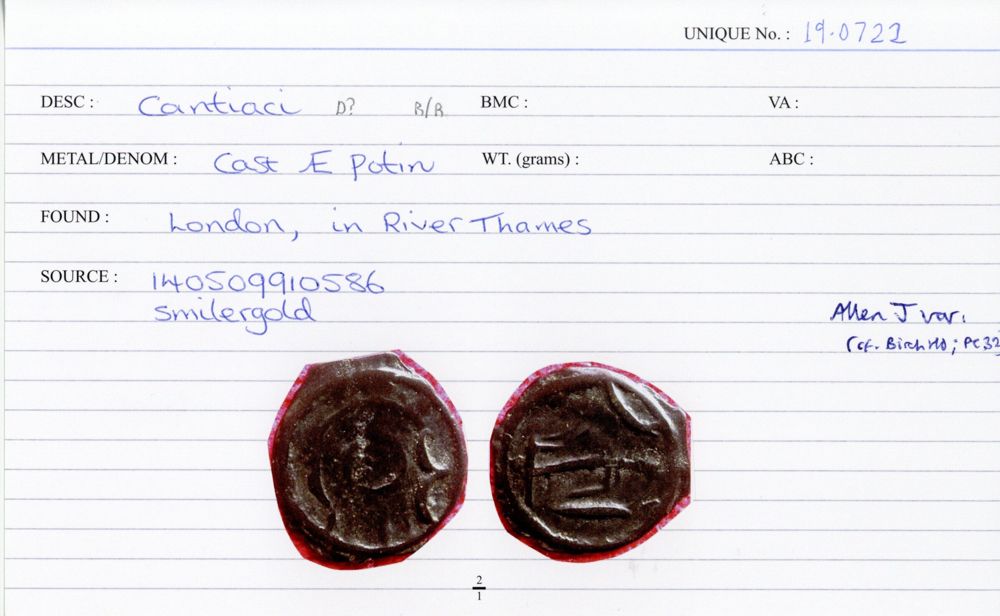 UNIQUE No. : 19.0721
DESC : Cantiaci D? B/B BMC : VA :
METAL/DENOM : Cast Æ Potin WT. (grams) : ABC :
FOUND : London, in River Thames
SOURCE : 140509910586
smilergold
Allen J var.
(cf. Birch; PC32
2
1